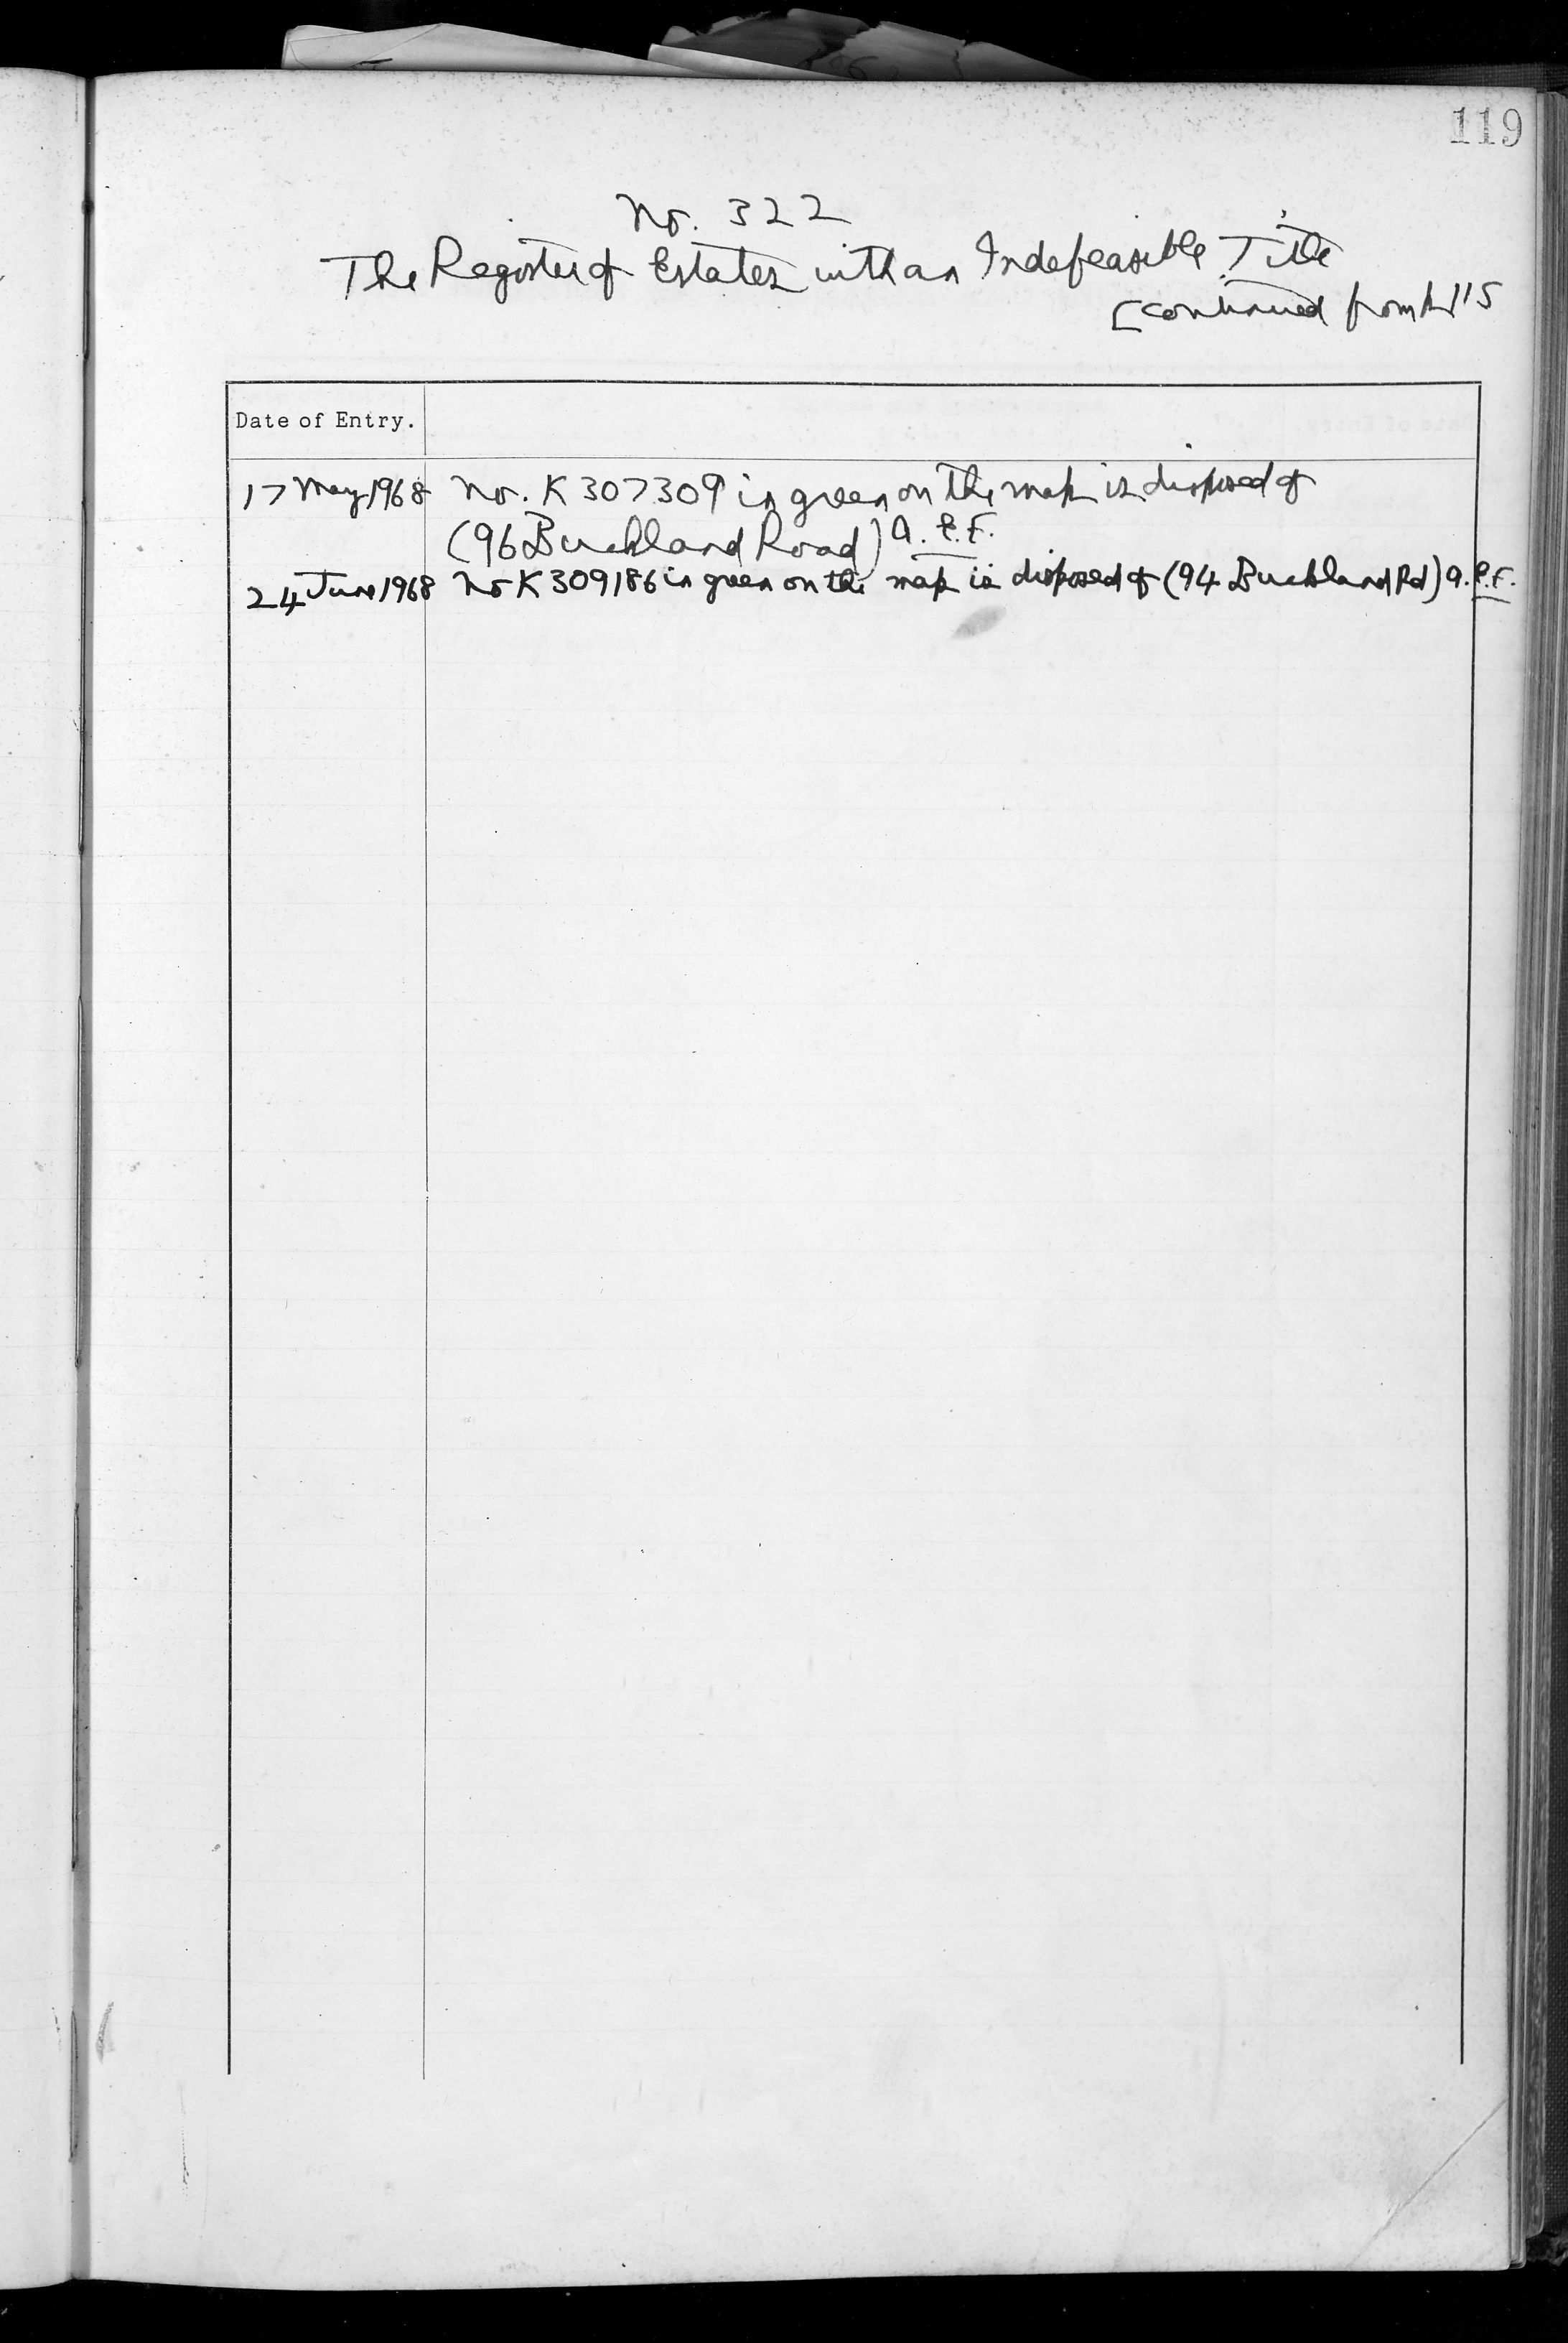 119
No. 322
The Register of Estates with an Indefeasible Title
[continued from p 115
Date of Entry.
17 May 1968 No. K 307309 in green on the map is disposed of
(96 Buckland Road) A. E. F.
24 June 1968 No K 309186 in green on the map is disposed of (94 Buckland Rd) A. E. F.